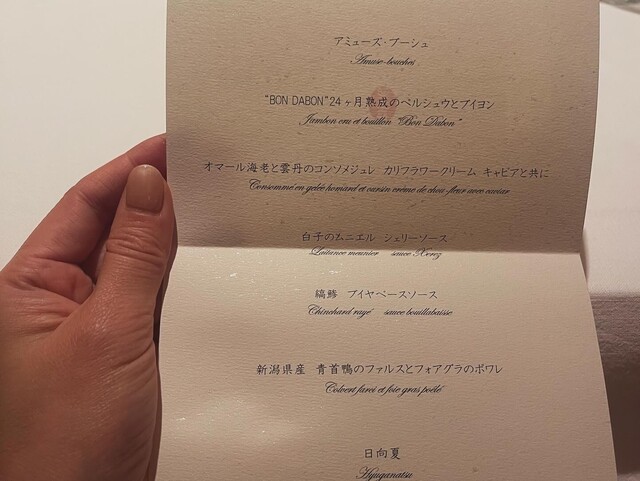 アミューズ・ブーシュ
Amuse-bouches
"BON DABON"24ヶ月熟成のペルシュウとブイヨン
Jambon cru et bouillon "Bon Dabon"
オマール海老と雲丹のコンソメジュレ カリフラワークリーム キャビアと共に
Consommé en gelée homard et oursin crème de chou-fleur avec caviar
白子のムニエル シェリーソース
Laitance meunier sauce Xerez
縞鯵 ブイヤベースソース
Chinchard rayé sauce bouillabaisse
新潟県産 青首鴨のファルスとフォアグラのポワレ
Colvert farci et foie gras poêlé
日向夏
Hyuganatsu